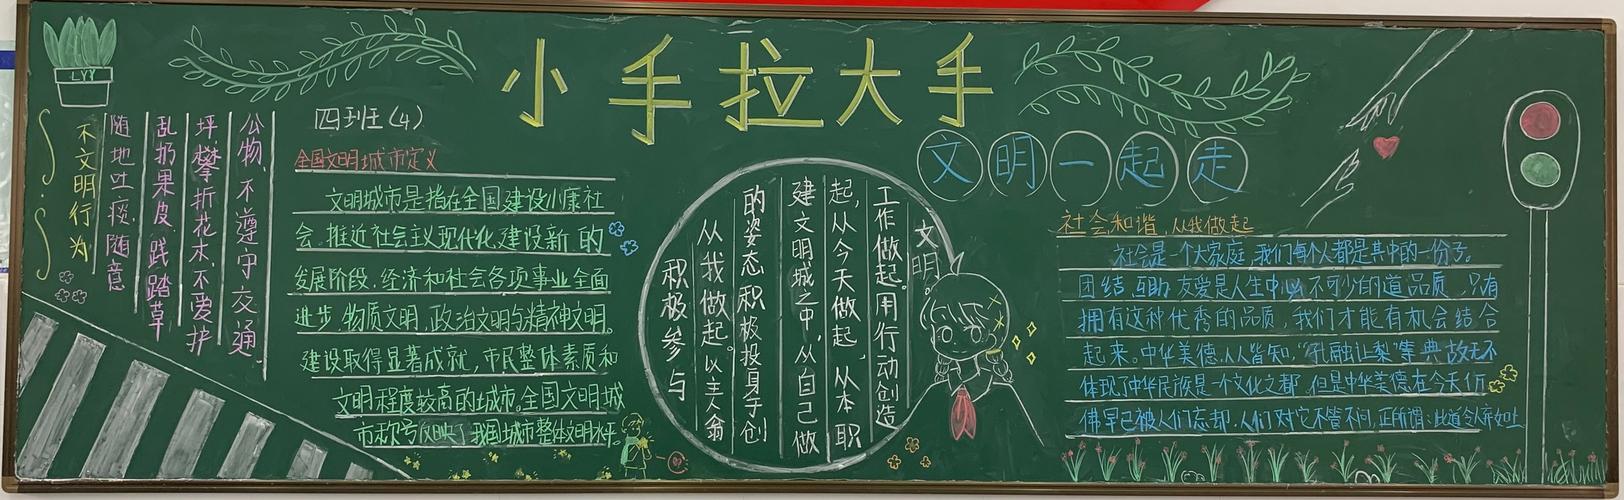 LYY
小手拉大手
文明一起走
不文明行为
随地吐痰,随意
乱扔果皮,践踏草
坪,攀折花木,不爱护
公物,不遵守交通.
四班(4)
全国文明城市定义
文明城市是指在全国建设小康社
会.推近社会主义现代化,建设新的
发展阶段.经济和社会各项事业全面
进步,物质文明,政治文明与精神文明.
建设取得显著成就,市民整体素质和
文明程度较高的城市.全国文明城
市称号反映了我国城市整体文明水平.
积极参与
从我做起。以主人翁
的姿态积极投身于创
建文明城之中,从自己做
起,从今天做起,从本职
工作做起。用行动创造
文明
社会和谐,从我做起
社会是一个大家庭,我们每个人都是其中的一份子。
团结互助友爱是人生中必不可少的道品质,只有
拥有这种优秀的品质,我们才能有机会结合
起来。中华美德,人人皆知,"孔融让梨"等典故无不
体现了中华民族是一个文化之都,但是中华美德在今天仿
佛早已被人们忘却.人们对它不管不问,正所谓:此道今人弃如土